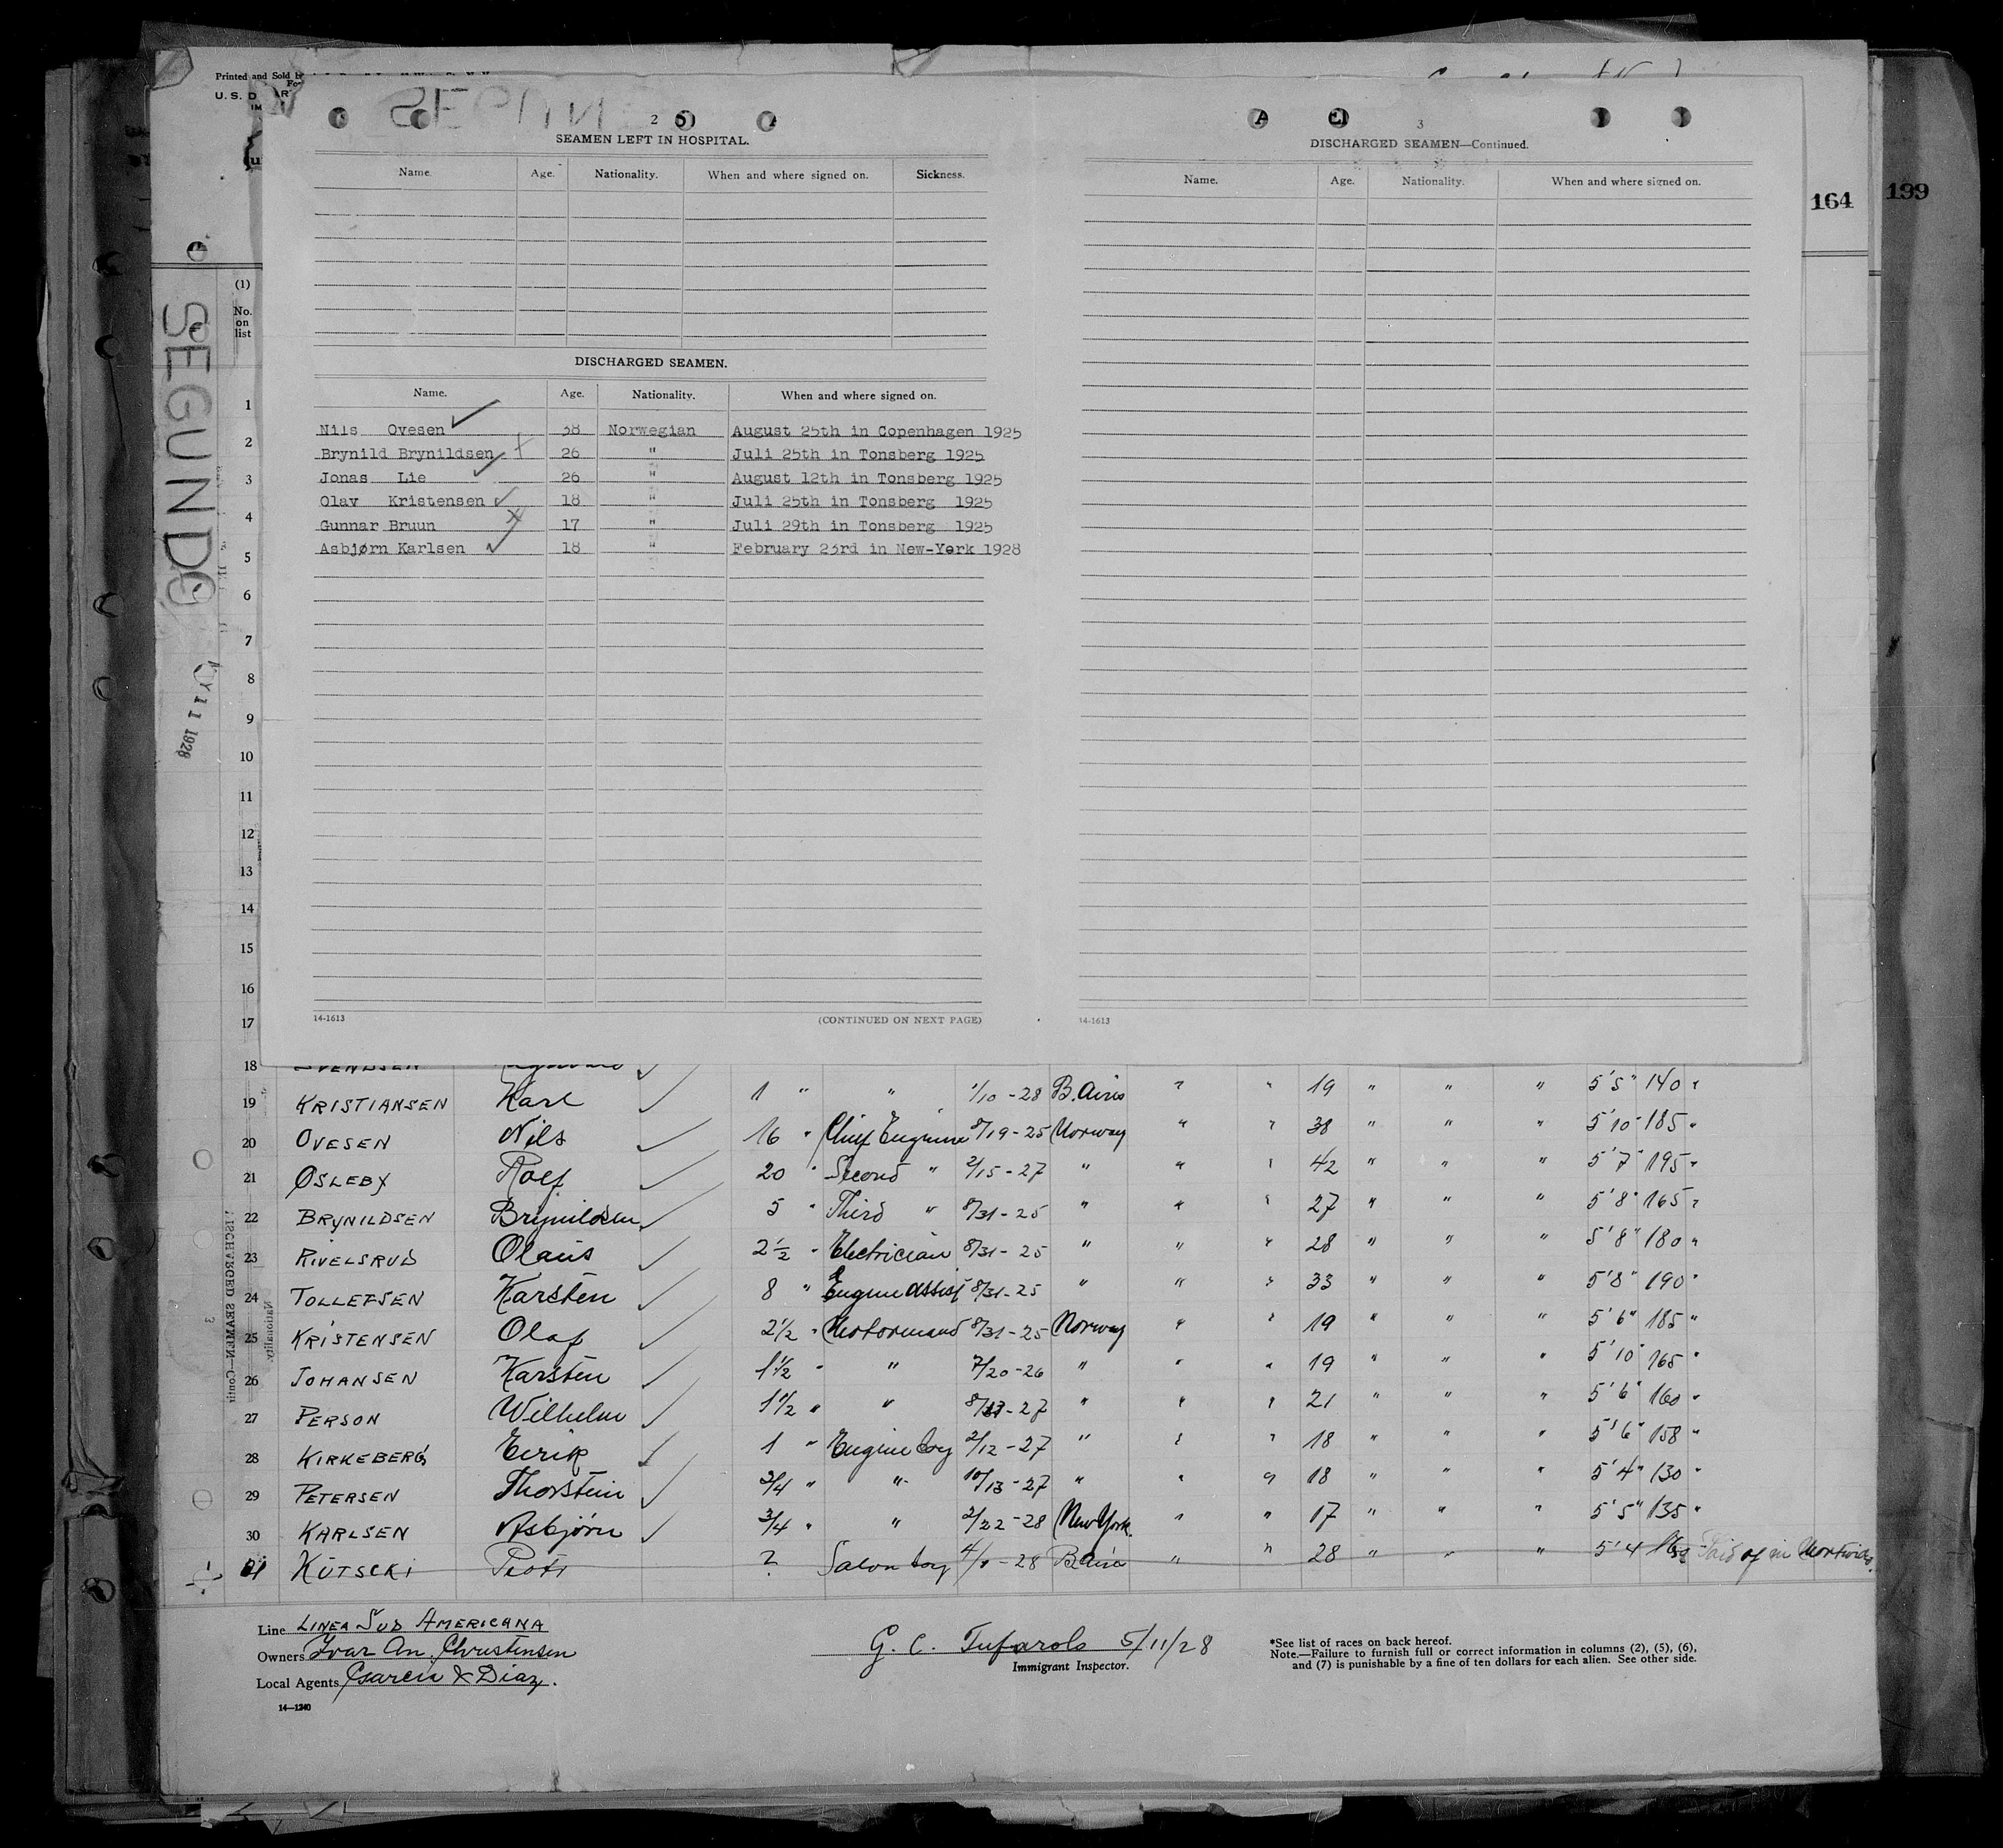 Printed and Sold b
U. S. D AR
SEGUNDO
2
SEAMEN LEFT IN HOSPITAL.
Name. Age. Nationality. When and where signed on. Sickness.
DISCHARGED SEAMEN.
Name. Age. Nationality. When and where signed on.
Nils Ovesen 38 Norwegian August 25th in Copenhagen 1925
Brynild Brynildsen 26 " Juli 25th in Tonsberg 1925
Jonas Lie 26 " August 12th in Tonsberg 1925
Olav Kristensen 18 " Juli 25th in Tonsberg 1925
Gunnar Bruun 17 " Juli 29th in Tonsberg 1925
Asbjørn Karlsen 18 " February 23rd in New-York 1928
14-1613 (CONTINUED ON NEXT PAGE)
3
DISCHARGED SEAMEN—Continued.
Name. Age. Nationality. When and where signed on.
14-1613
164
199
(1)
No.
on
list
1
2
3
4
5
6
7
8
9
10
11
12
13
14
15
16
17
18
19 KRISTIANSEN Karl 1 " " 1/10-28 B. Aires " " 19 " " " 5'5" 140 "
20 OVESEN Nils 16 " Chief Engineer 8/19-25 Norway " " 38 " " " 5'10" 185 "
21 ØSLEBY Rolf 20 " Second " 2/15-27 " " " 42 " " " 5'7" 195 "
22 BRYNILDSEN Brynildsen 5 " Third " 8/31-25 " " " 27 " " " 5'8" 165 "
23 RIVELSRUD Olaus 2½ " Electrician 8/31-25 " " " 28 " " " 5'8" 180 "
24 TOLLEFSEN Karsten 8 " Engine assist 8/31-25 " " " 33 " " " 5'8" 190 "
25 KRISTENSEN Olaf 2½ " Motormand 8/31-25 Norway " " 19 " " " 5'6" 185 "
26 JOHANSEN Karsten 1½ " " 7/20-26 " " " 19 " " " 5'10" 165 "
27 PERSON Wilhelm 1½ " " -27 " " " 21 " " " 5'6" 160 "
28 KIRKEBERG Eirik 1 " Engine boy 2/12-27 " " " 18 " " " 5'6" 158 "
29 PETERSEN Thorstein 3/4 " " 10/13-27 " " " 18 " " " 5'4" 130 "
30 KARLSEN Asbjørn 3/4 " " 2/22-28 New York. " " 17 " " " 5'5" 135 "
KUTSCKI Piotr ? Salon boy -28 B Aire " " 28 " " " 5'4 Paid of in
Line LINEA SUD AMERICANA
Owners Ivar An. Christensen
Local Agents Garcia & Diaz.
14—1240
G. C. Tufarolo 5/11/28
Immigrant Inspector.
*See list of races on back hereof.
Note.—Failure to furnish full or correct information in columns (2), (5), (6),
and (7) is punishable by a fine of ten dollars for each alien. See other side.